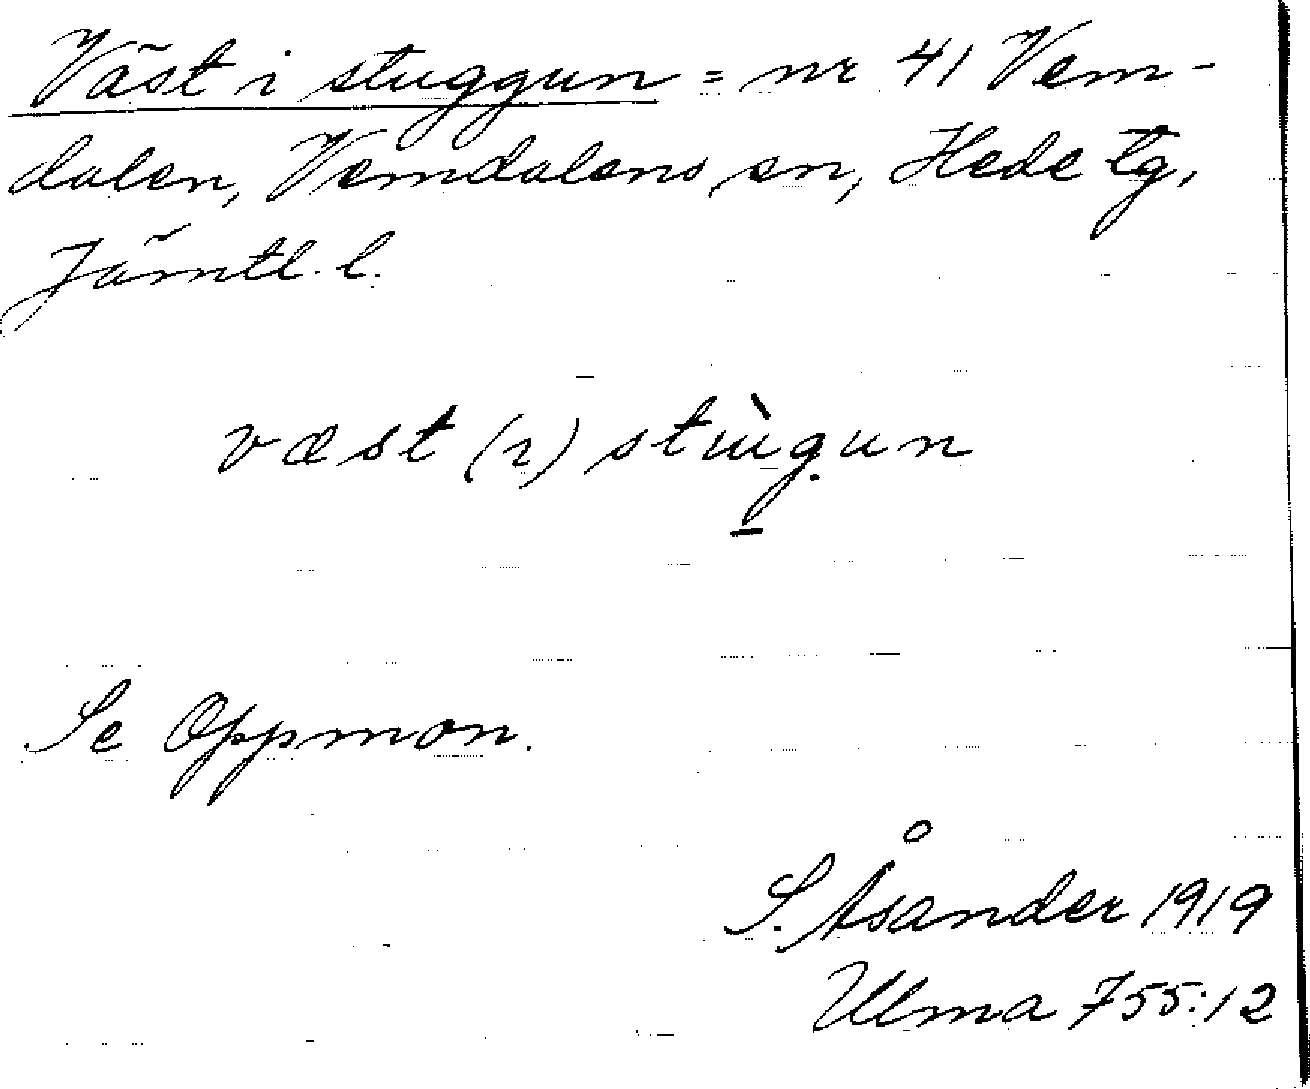 Väst i stuggun = nr 41 Vem-
dalen, Vemdalens sn, Hede tg,
Jämtl. l.
væst (ı) stùg̣un
Se Oppmon.
S. Åsander 1919
Ulma 755:12